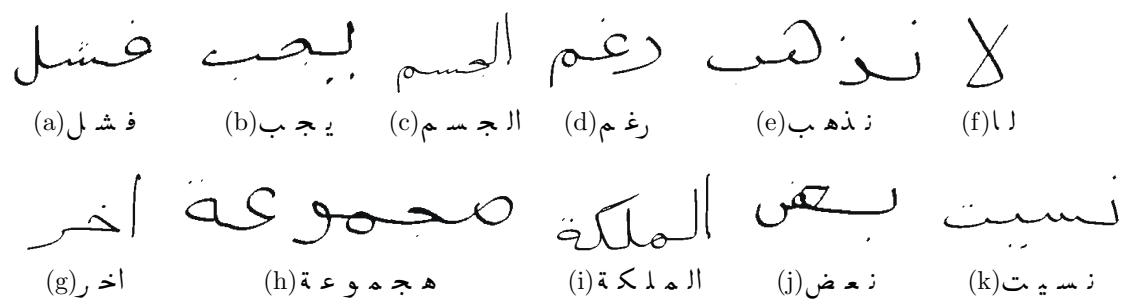 فشل يجب الجسم رغم نذهب لا
(a) فشل (b) يجب (c) الجسم (d) رغم (e) نذهب (f) لا
اخر مجموعة الملكة بعض نسيت
(g) اخر (h) هجموعة (i) الملكة (j) نعض (k) نسيت